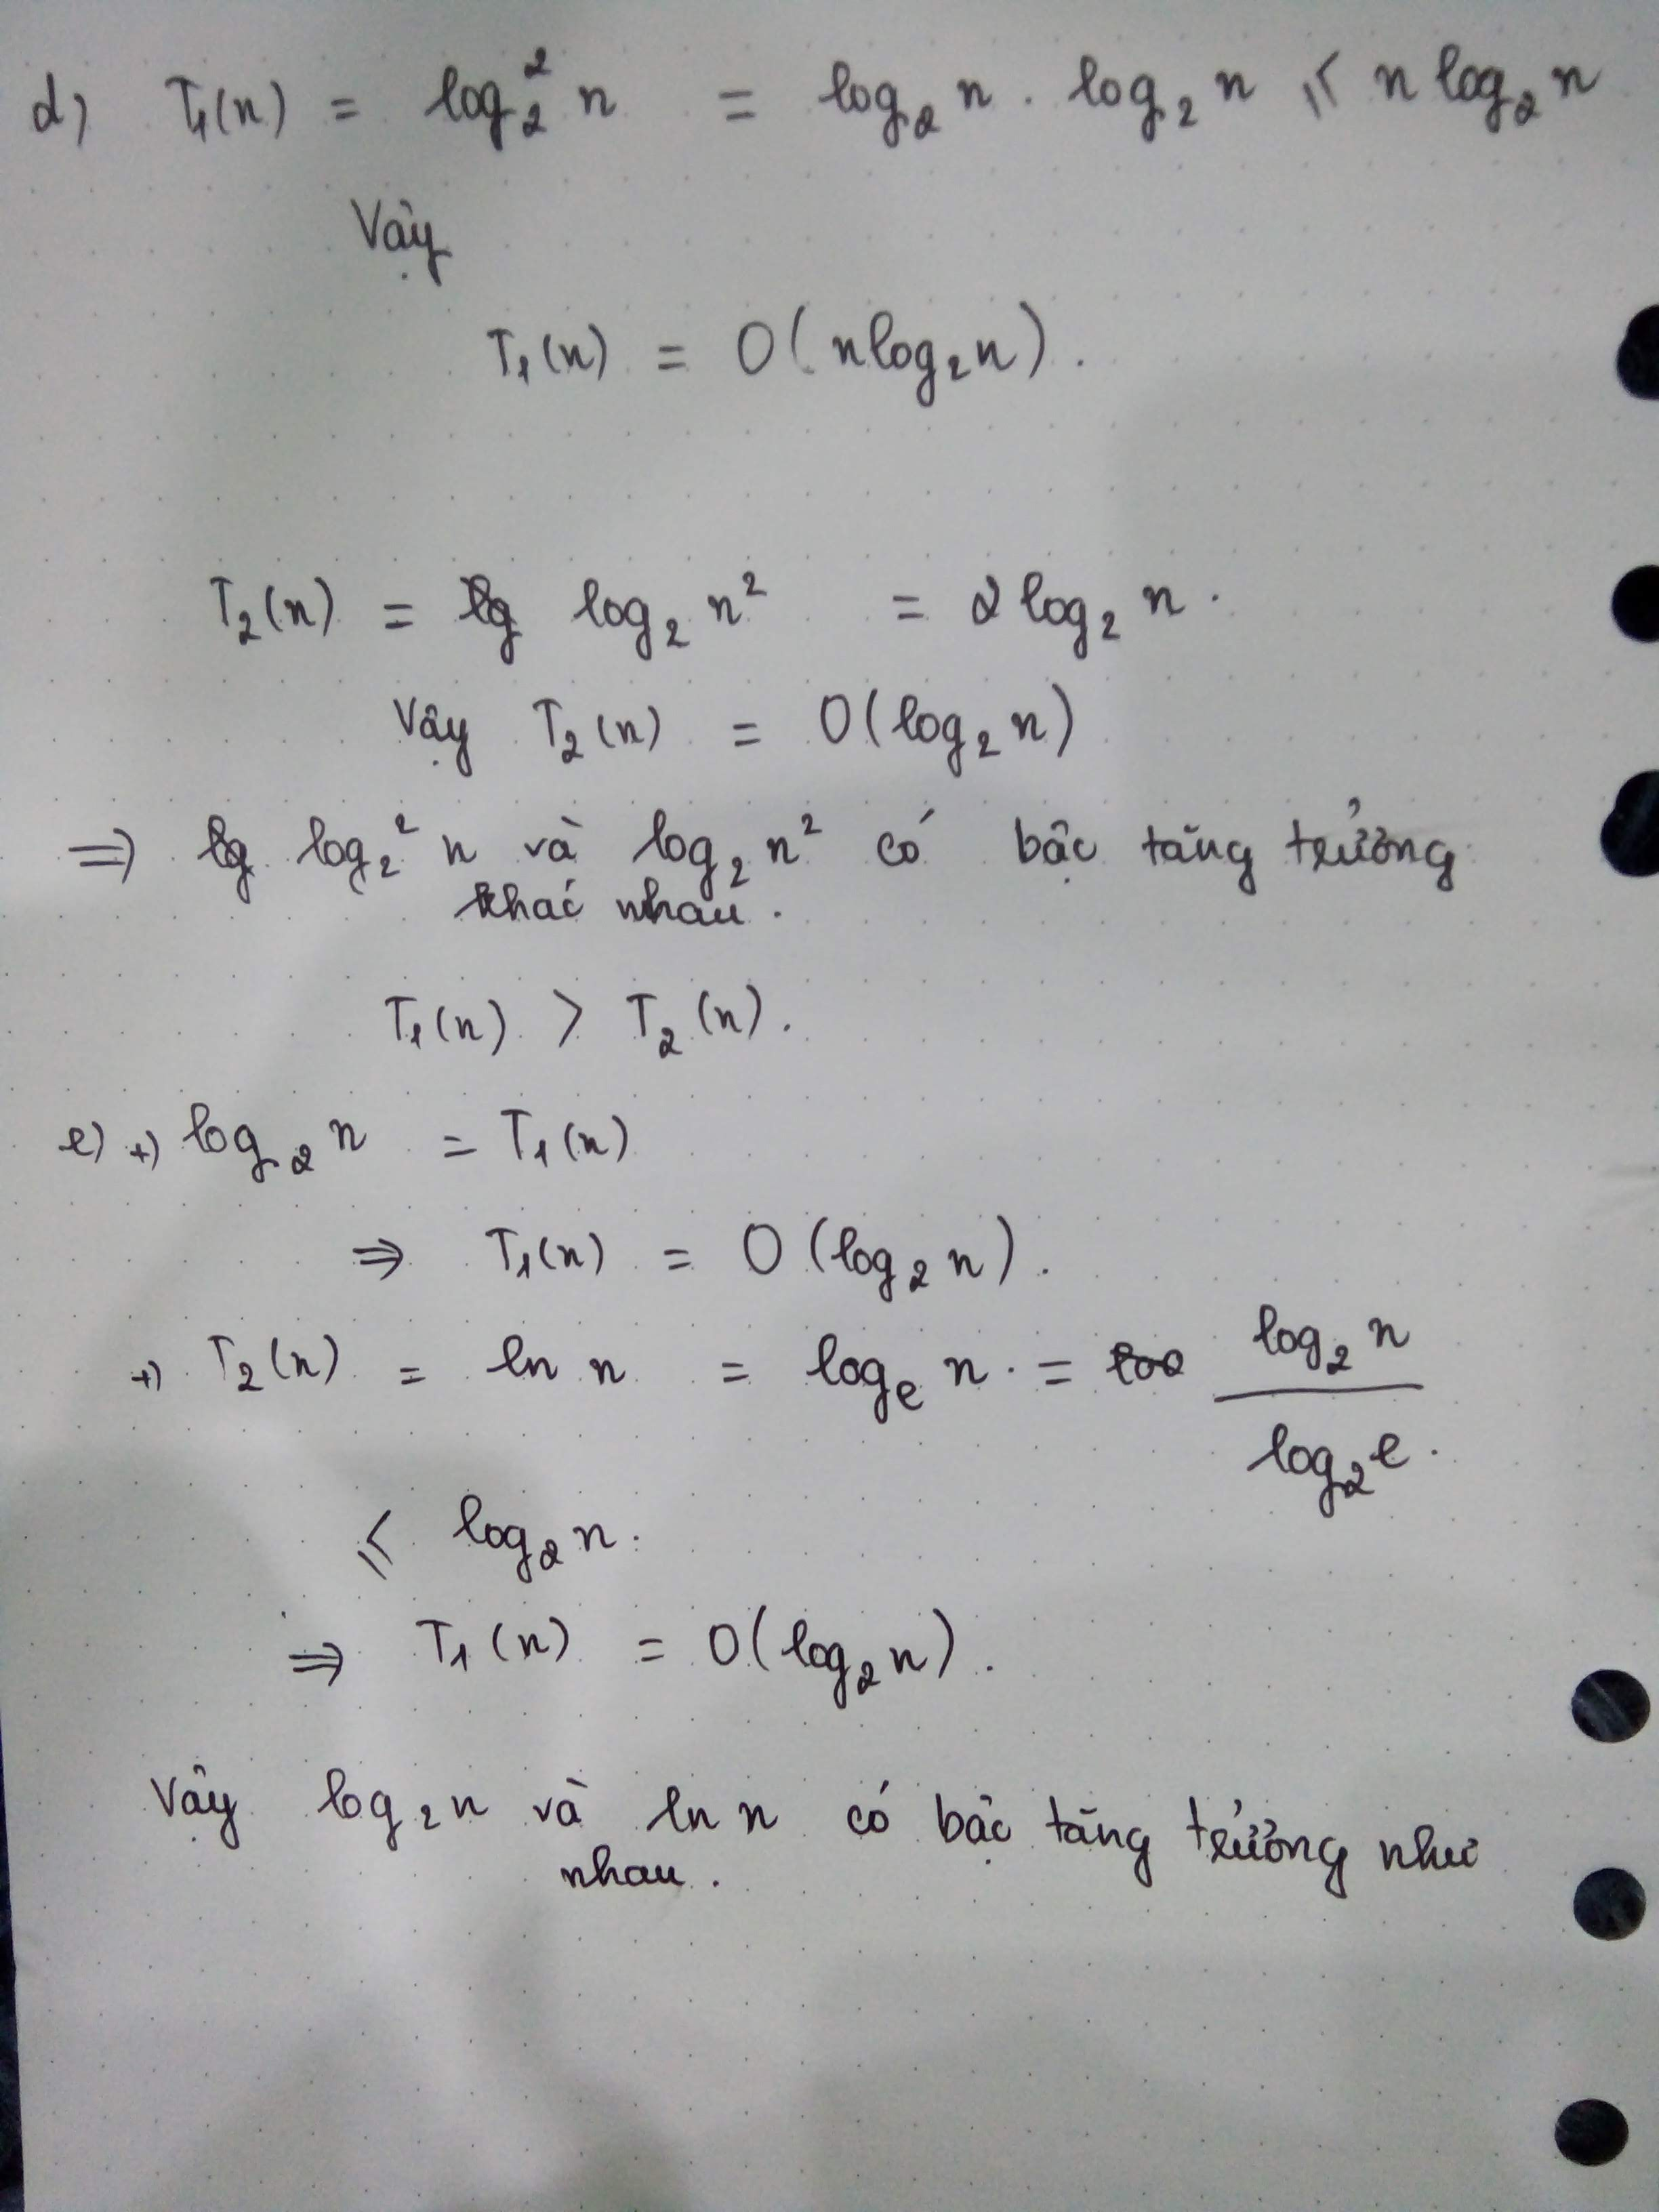 d) T₁(n) = log₂² n = log₂ n . log₂ n ≤ n log₂ n
Vậy
T₁(n) = O(n log₂ n).
T₂(n) = log₂ n² = 2 log₂ n.
Vậy T₂(n) = O(log₂ n)
⇒ log₂² n và log₂ n² có bậc tăng trưởng
khác nhau.
T₁(n) > T₂(n).
e) +) log₂ n = T₁(n)
⇒ T₁(n) = O(log₂ n).
+) T₂(n) = ln n = logₑ n. = log₂ n / log₂ e.
≤ log₂ n.
⇒ T₁(n) = O(log₂ n).
Vậy log₂ n và ln n có bậc tăng trưởng như
nhau.